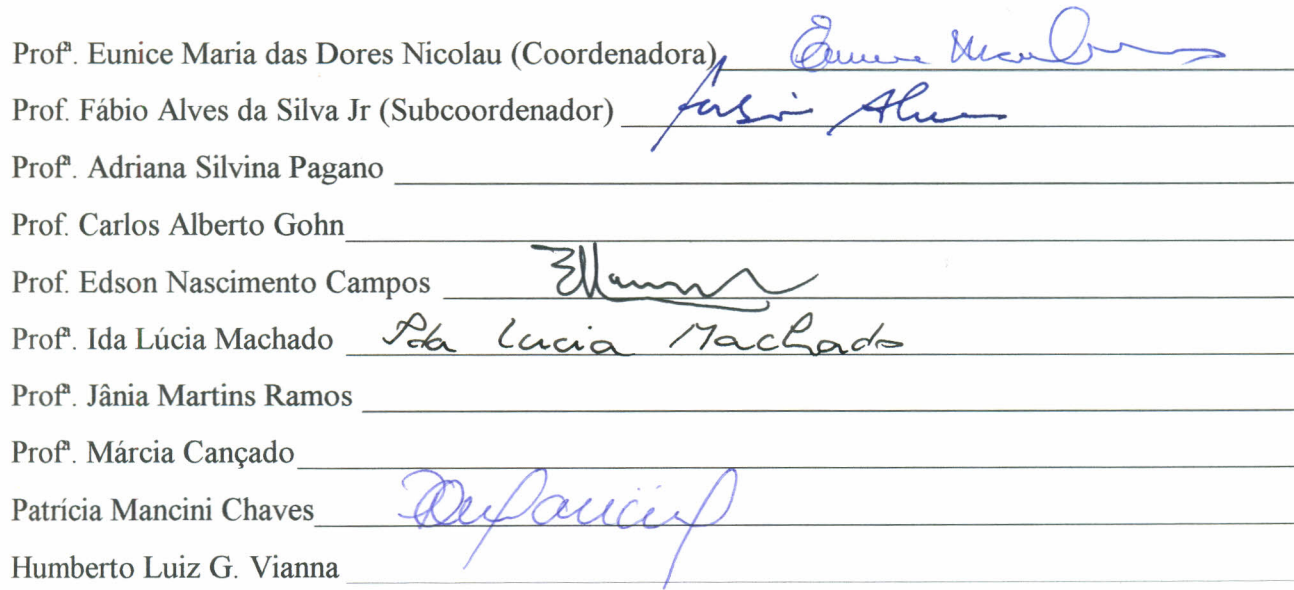 Profª. Eunice Maria das Dores Nicolau (Coordenadora)
Prof. Fábio Alves da Silva Jr (Subcoordenador) Fabio Alves
Profª. Adriana Silvina Pagano
Prof. Carlos Alberto Gohn
Prof. Edson Nascimento Campos
Profª. Ida Lúcia Machado Ida Lucia Machado
Profª. Jânia Martins Ramos
Profª. Márcia Cançado
Patrícia Mancini Chaves
Humberto Luiz G. Vianna